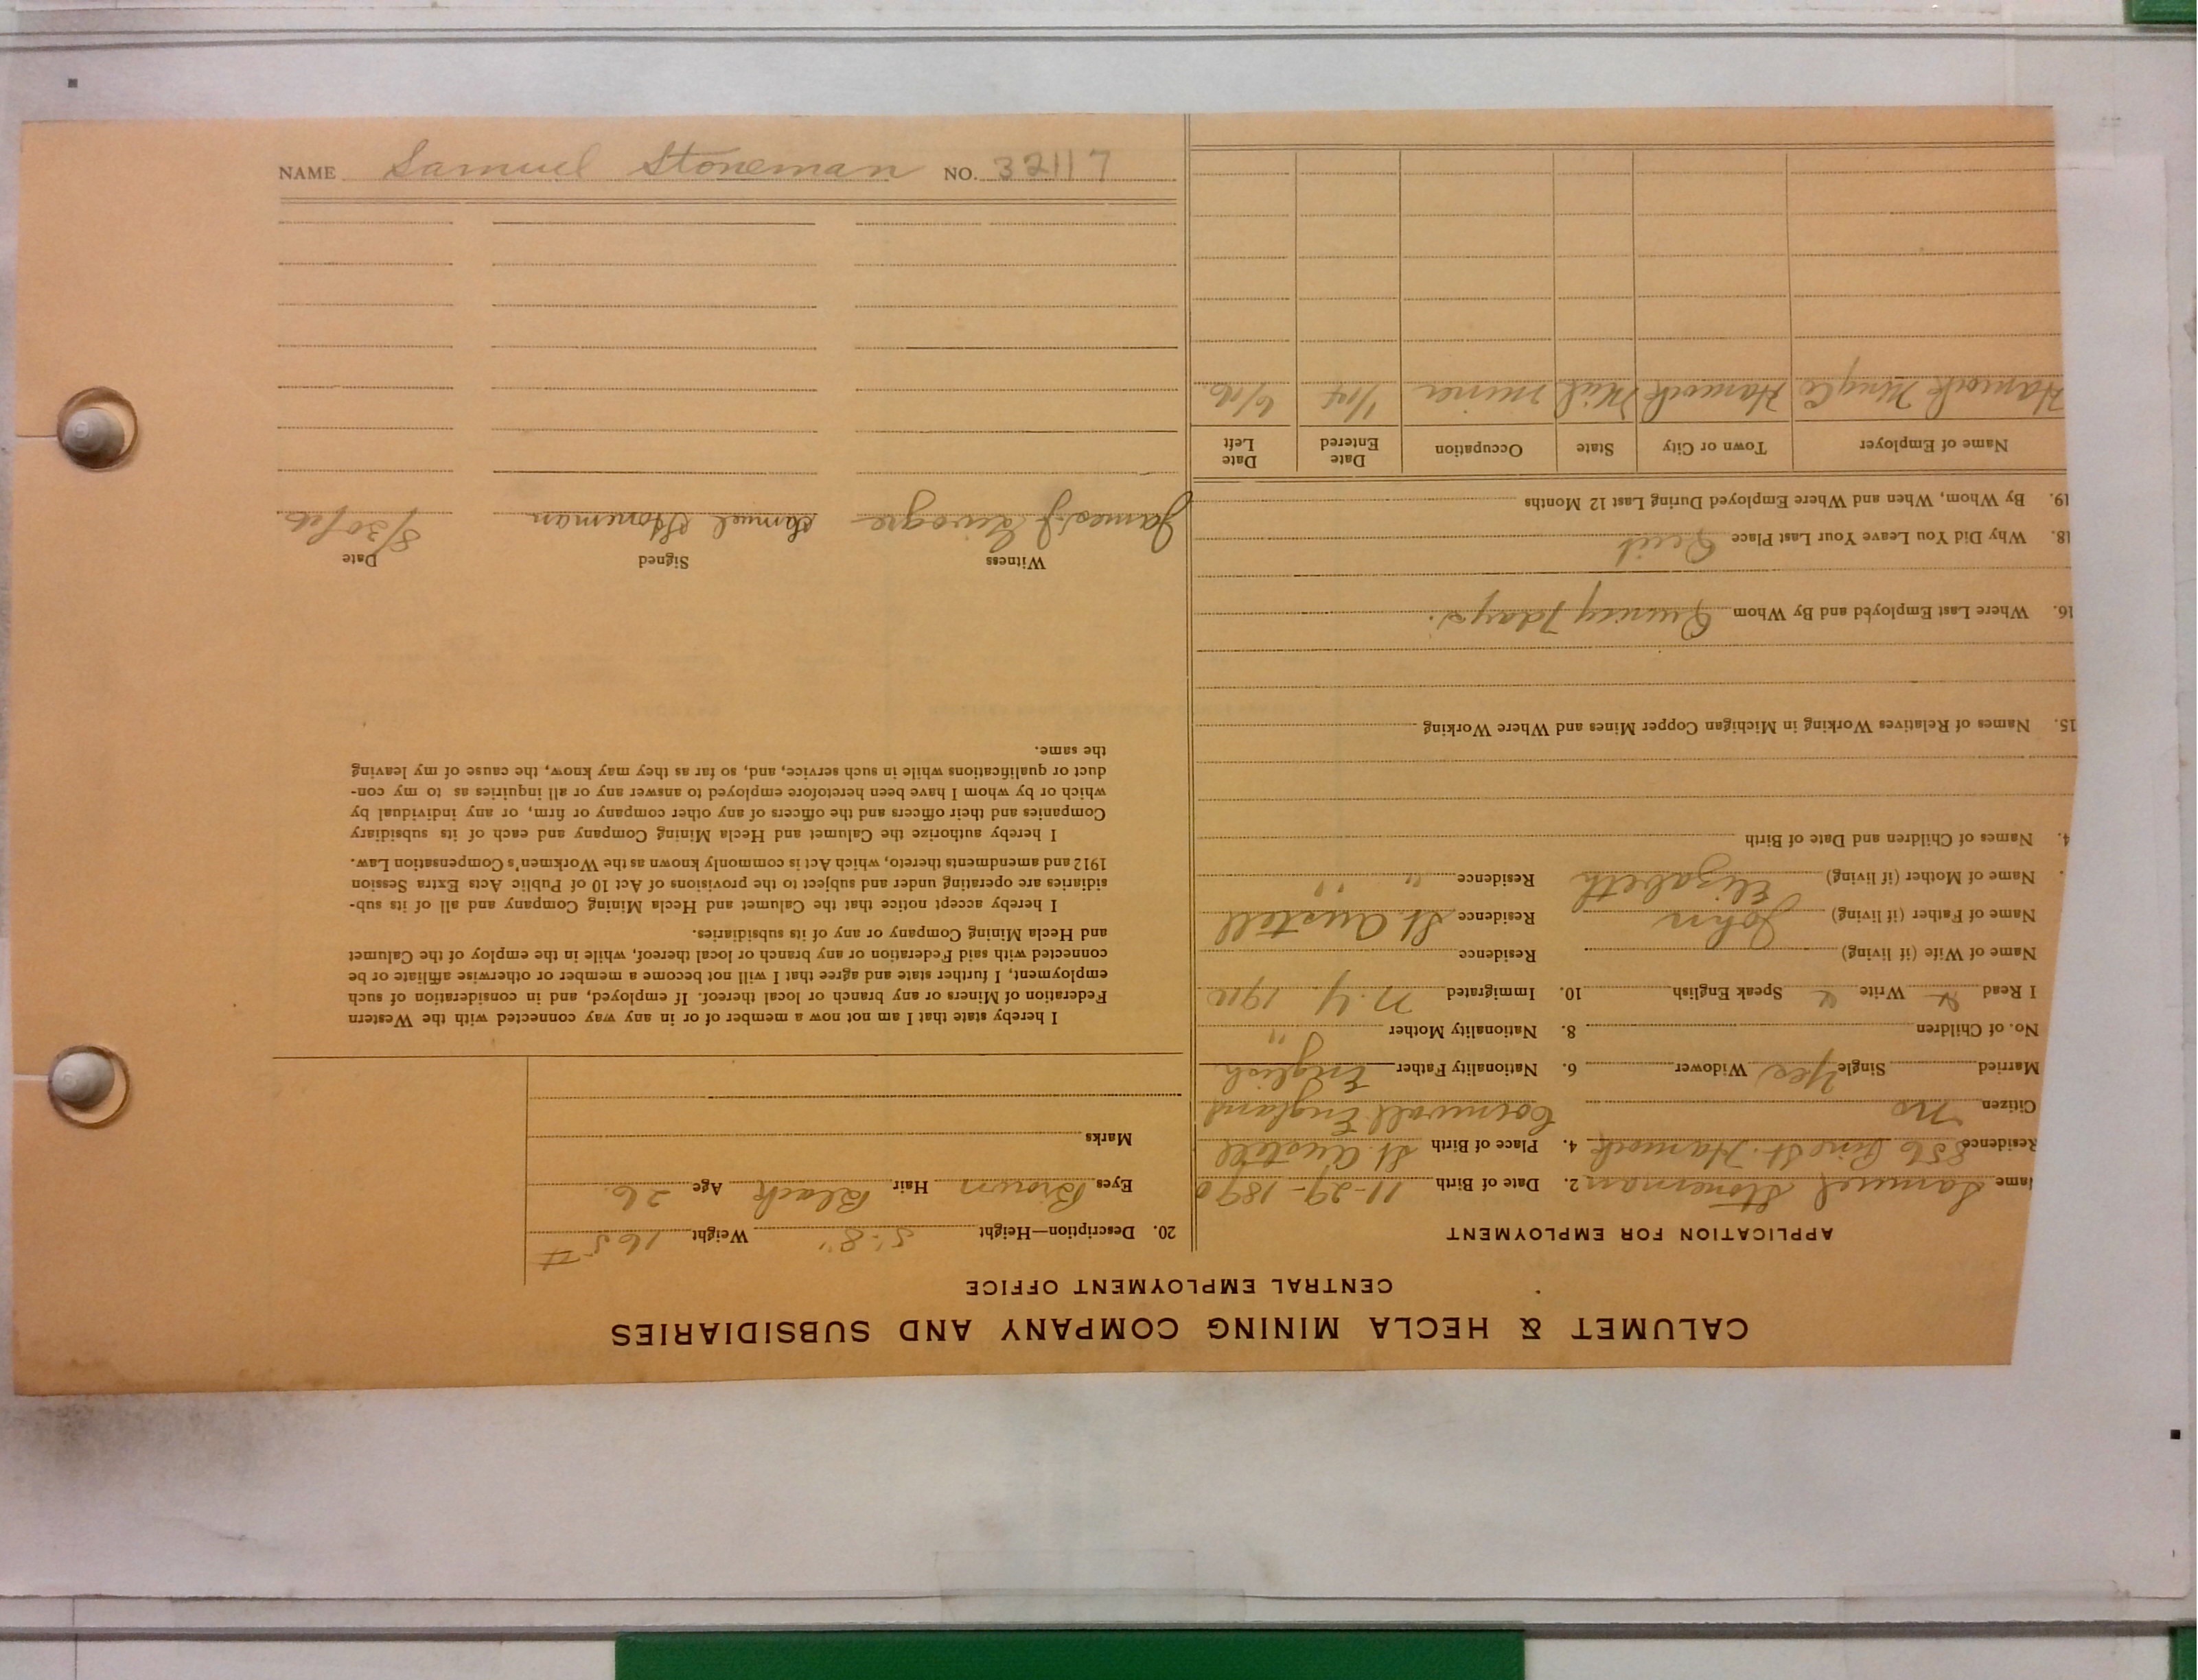 CALUMET & HECLA MINING COMPANY AND SUBSIDIARIES
CENTRAL EMPLOYMENT OFFICE
APPLICATION FOR EMPLOYMENT
ame Samuel Stoneman 2. Date of Birth 11-29-1890
Residence 856 Pine St. Hancock 4. Place of Birth St. Austell
Citizen no Cornwall England
Married Single Yes Widower 6. Nationality Father English
No. of Children 8. Nationality Mother "
I Read Write Speak English 10. Immigrated N.Y. 1910
Name of Wife (if living) Residence
Name of Father (if living) John Residence St. Austell
Name of Mother (if living) Elizabeth Residence " "
4. Names of Children and Date of Birth
15. Names of Relatives Working in Michigan Copper Mines and Where Working
16. Where Last Employed and By Whom Quincy 7 days.
18. Why Did You Leave Your Last Place Quit
19. By Whom, When and Where Employed During Last 12 Months
Name of Employer Town or City State Occupation Date Entered Date Left
Hancock Mng Co Hancock Mich miner 6/16
20. Description—Height 5'-8" Weight 165 #
Eyes Brown Hair Black Age 26
Marks
I hereby state that I am not now a member of or in any way connected with the Western
Federation of Miners or any branch or local thereof. If employed, and in consideration of such
employment, I further state and agree that I will not become a member or otherwise affiliate or be
connected with said Federation or any branch or local thereof, while in the employ of the Calumet
and Hecla Mining Company or any of its subsidiaries.
I hereby accept notice that the Calumet and Hecla Mining Company and all of its sub-
sidiaries are operating under and subject to the provisions of Act 10 of Public Acts Extra Session
1912 and amendments thereto, which Act is commonly known as the Workmen's Compensation Law.
I hereby authorize the Calumet and Hecla Mining Company and each of its subsidiary
Companies and their officers and the officers of any other company or firm, or any individual by
which or by whom I have been heretofore employed to answer any or all inquiries as to my con-
duct or qualifications while in such service, and, so far as they may know, the cause of my leaving
the same.
Witness Signed Date
James J Samuel Stoneman 8/30/16
NAME Samuel Stoneman NO. 32117